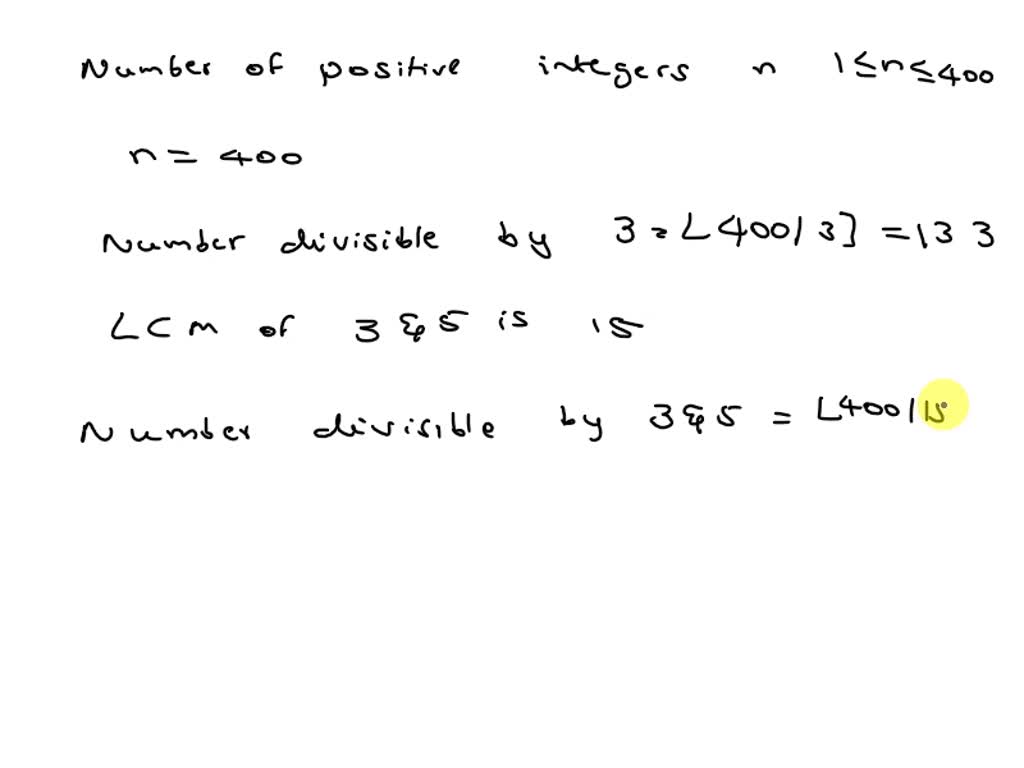 Number of positive integers n 1≤n≤400
n = 400
Number divisible by 3 = ⌊400/3⌋ = 133
LCM of 3 & 5 is 15
Number divisible by 3 & 5 = ⌊400/15